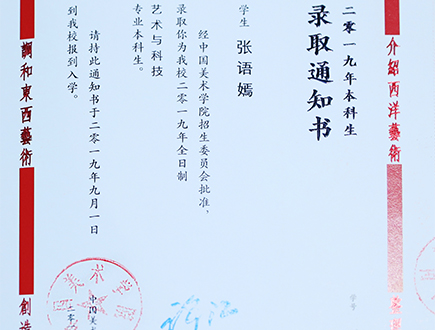 介紹西洋藝術
二零一九年本科生
录取通知书
学号
学生 张语嫣
经中国美术学院招生委员会批准，
录取你为我校二零一九年全日制
艺术与科技
专业本科生。
请持此通知书于二零一九年九月一日
到我校报到入学。
中国美
二零
調和東西藝術
創造